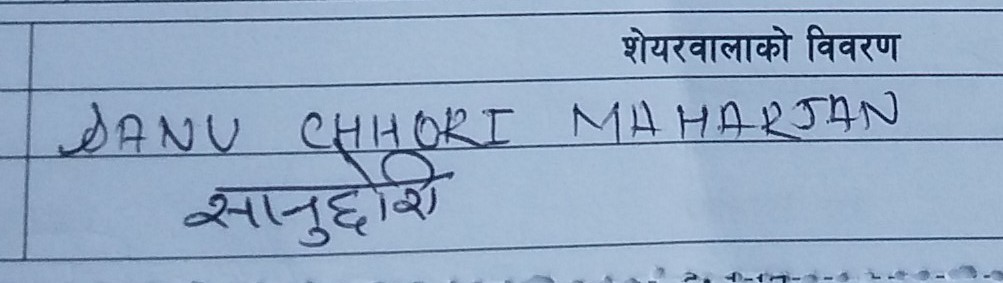 शेयरवालाको विवरण
SANU CHHORI MAHARJAN
सानुछोरि